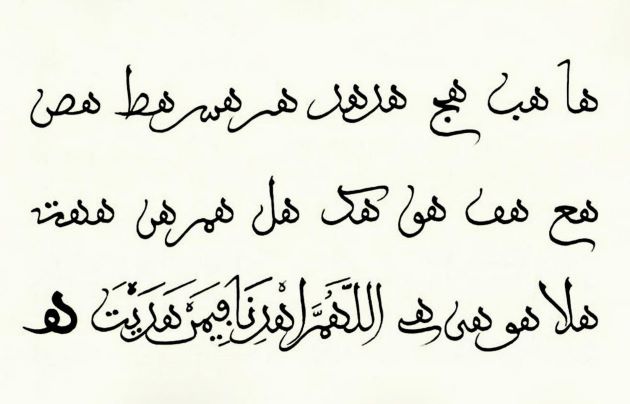 ها هب هج هد هر هر هس هر هط هص
هع هف هق هك هل هم هر هن هنهت
هلا هو هى هے اللَّهُمَّ اهْدِنَا فِيمَنْ هَدَيْتَ ه